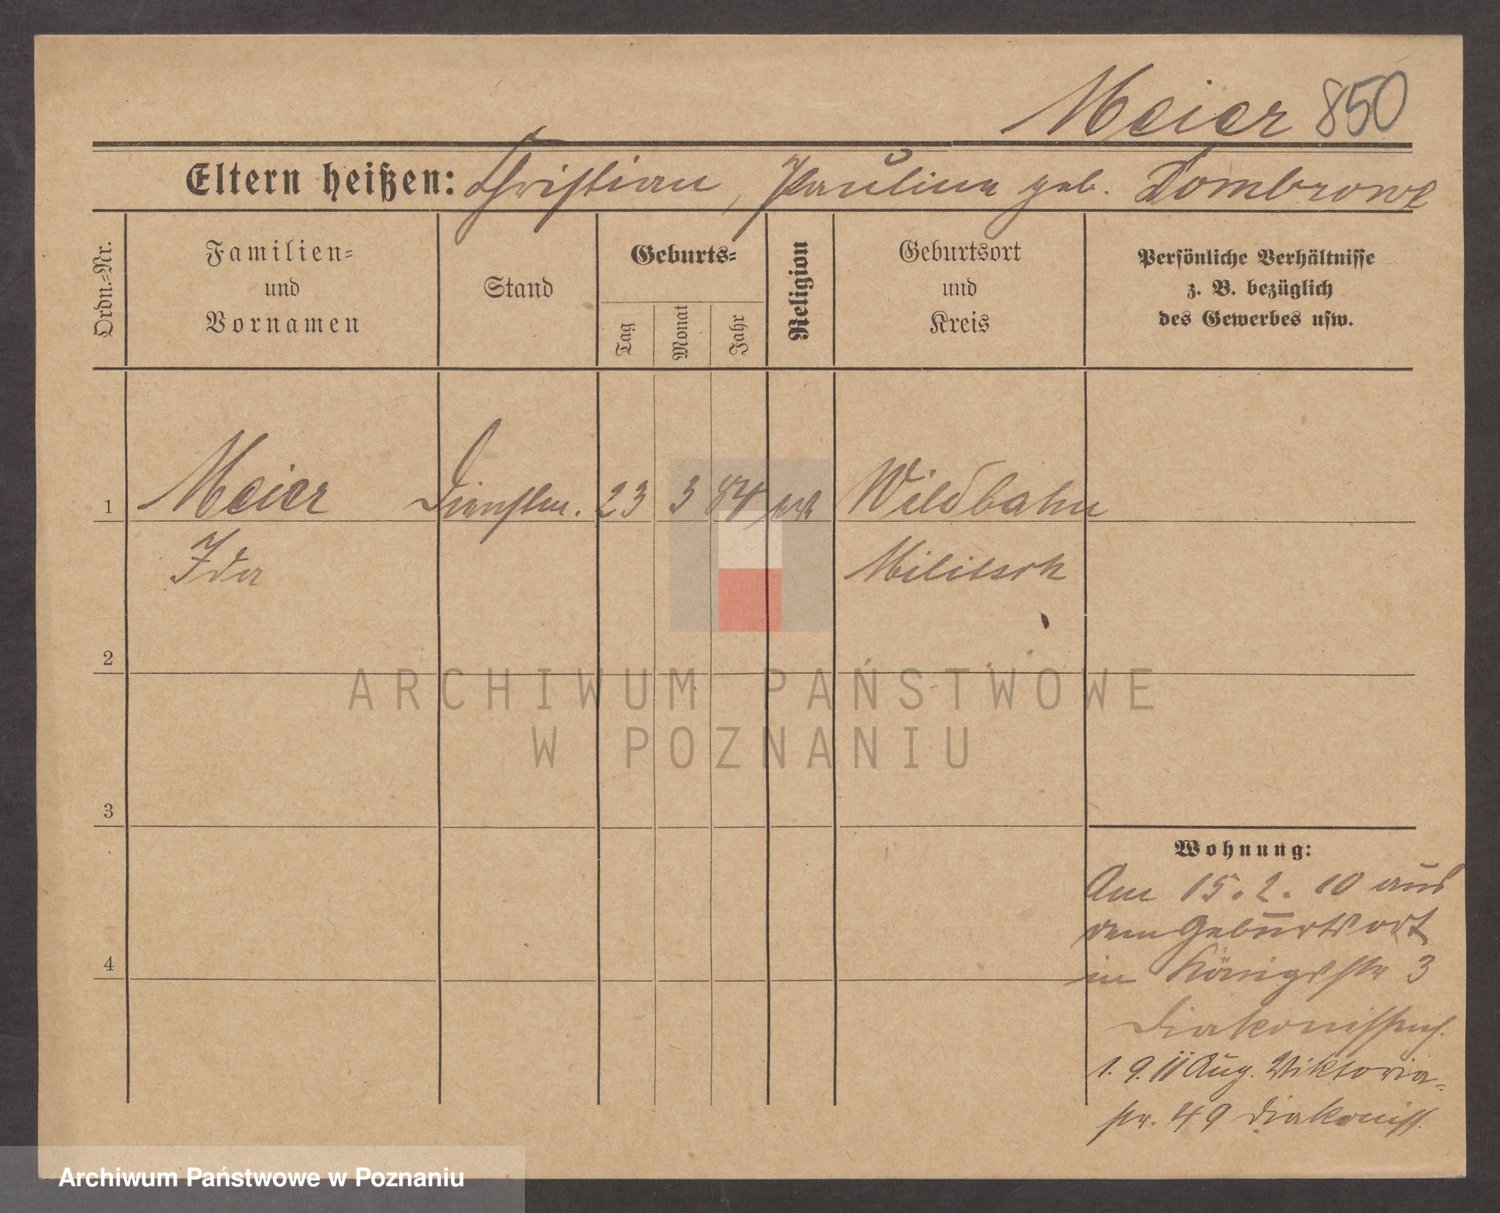 Meier 850
Eltern heißen: Christian, Pauline geb. Dombrowe
Ordn.-Nr.
Familien-
und
Vornamen
Stand
Geburts-
Tag
Monat
Jahr
Religion
Geburtsort
und
Kreis
Persönliche Verhältnisse
z. B. bezüglich
des Gewerbes usw.
1 Meier 23 3 84 Wildbahn
Ida Militsch
2
3
4
Wohnung:
Am 15.2.10 aus
dem Geburtsort
in Königstr 3
1.9.11 Aug. Viktoria-
str. 49 Diakoniss.
ARCHIWUM PAŃSTWOWE
W POZNANIU
Archiwum Państwowe w Poznaniu